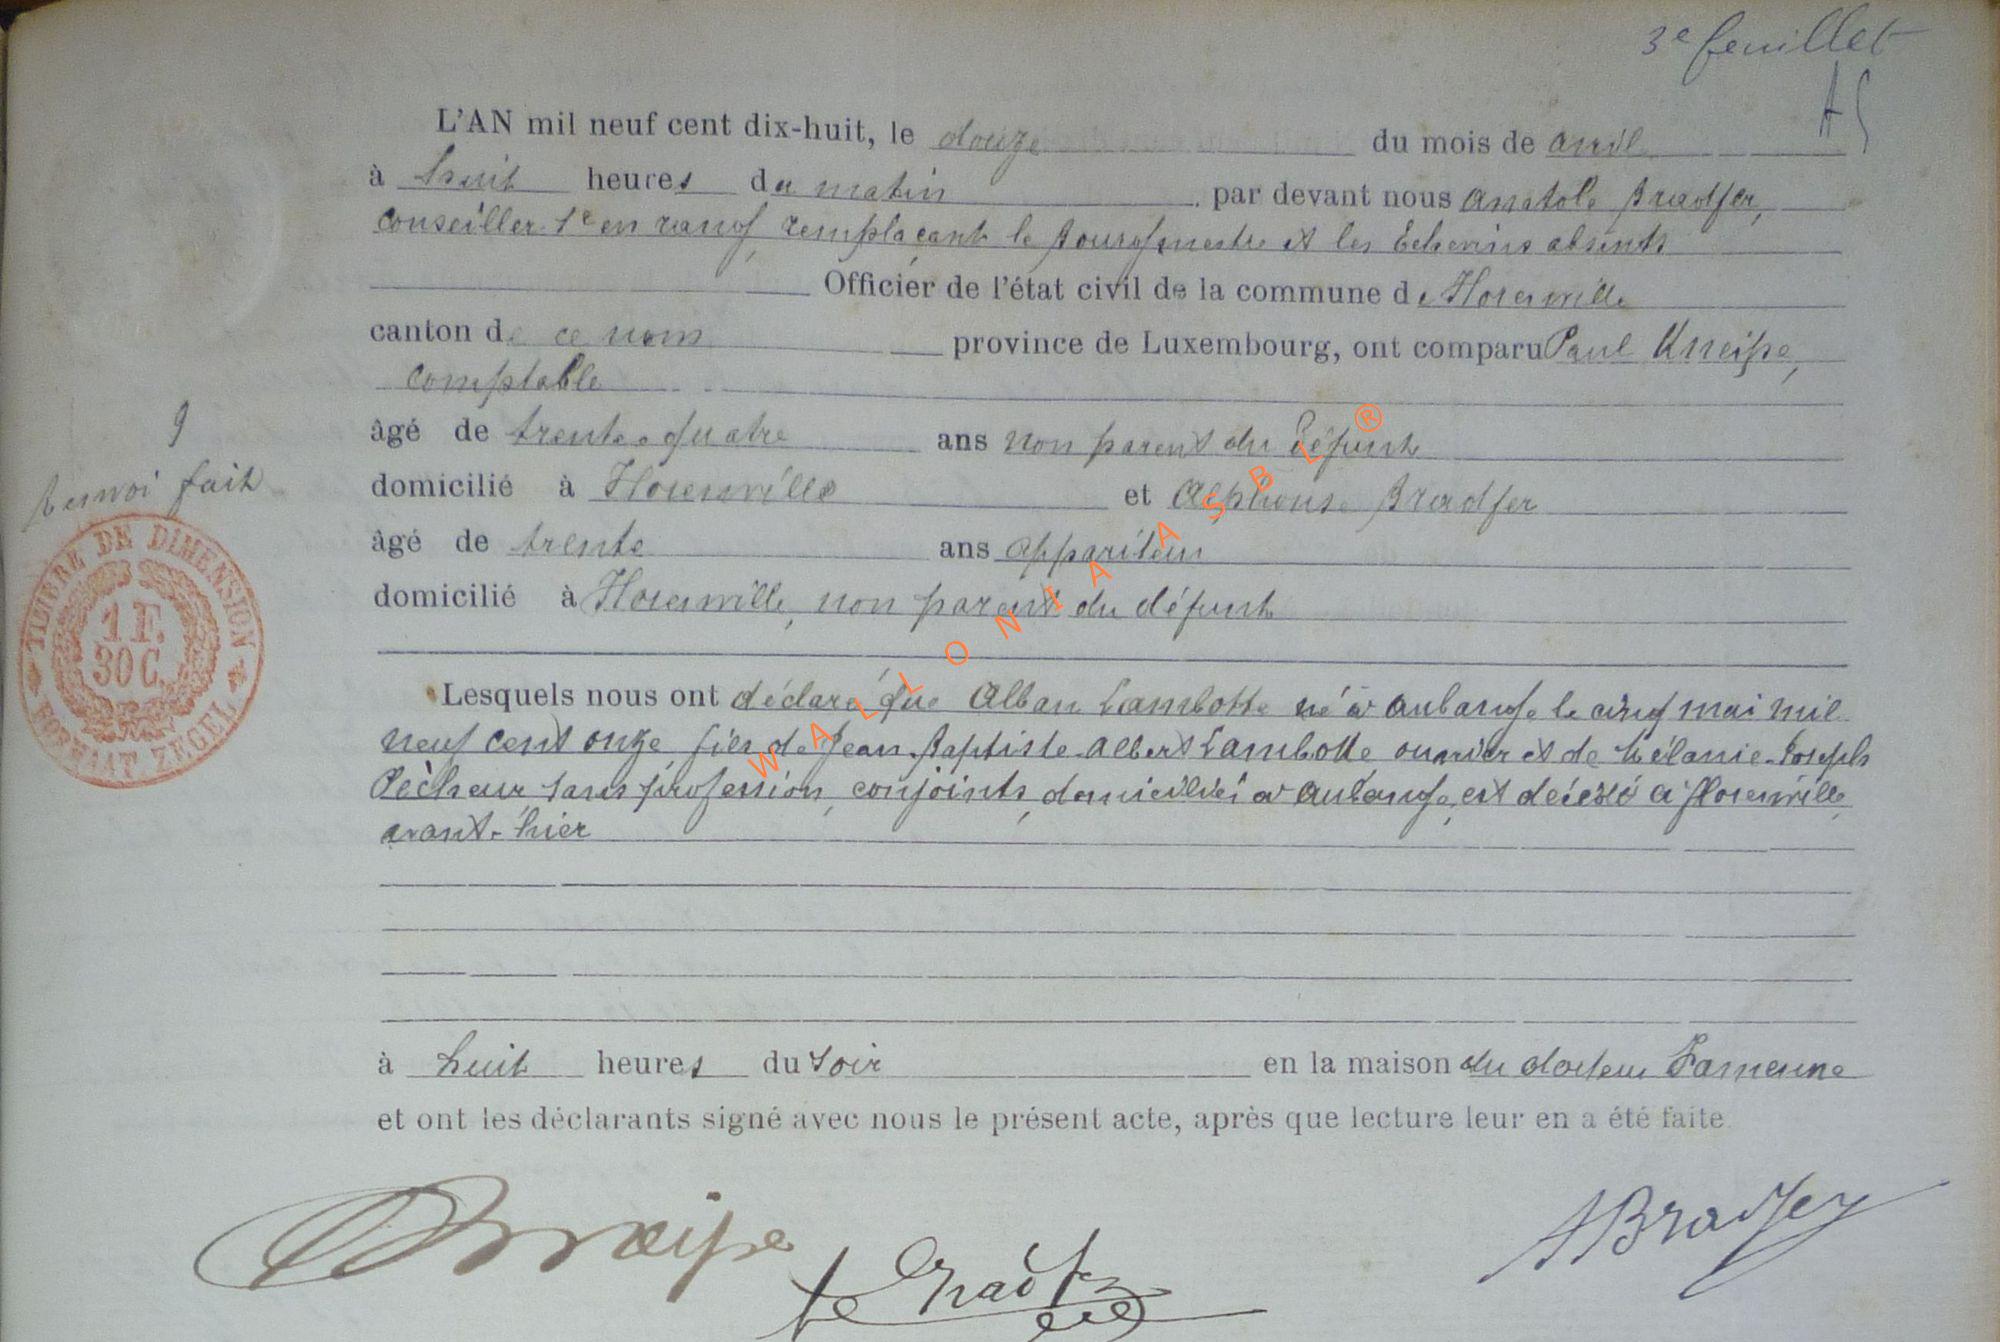 3e feuillet
L'AN mil neuf cent dix-huit, le douze du mois de avril
à huit heures du matin par devant nous Anatole Bradfer,
conseiller 1e en rang, remplaçant le Bourgmestre et les Echevins absents
Officier de l'état civil de la commune de Florenville
canton de ce nom province de Luxembourg, ont comparu Paul Kneipe,
comptable
âgé de trente-quatre ans non parent du défunt
domicilié à Florenville et Alphonse Bradfer
âgé de trente ans appariteur
domicilié à Florenville, non parent du défunt
9
Renvoi fait
TIMBRE DE DIMENSION
1 F.
30 C.
FORMAAT ZEGEL
Lesquels nous ont déclaré que Alban Lambotte né à Aubange le cinq mai mil
neuf cent onze fils de Jean-Baptiste Albert Lambotte ouvrier et de Mélanie-Joseph
Pêcheur, sans profession, conjoints, domiciliés à Aubange, est décédé à Florenville,
avant-hier
à huit heures du soir en la maison du docteur
et ont les déclarants signé avec nous le présent acte, après que lecture leur en a été faite
Kneipe
Bradfer
ABradfer
WALLONIA ASBL ®